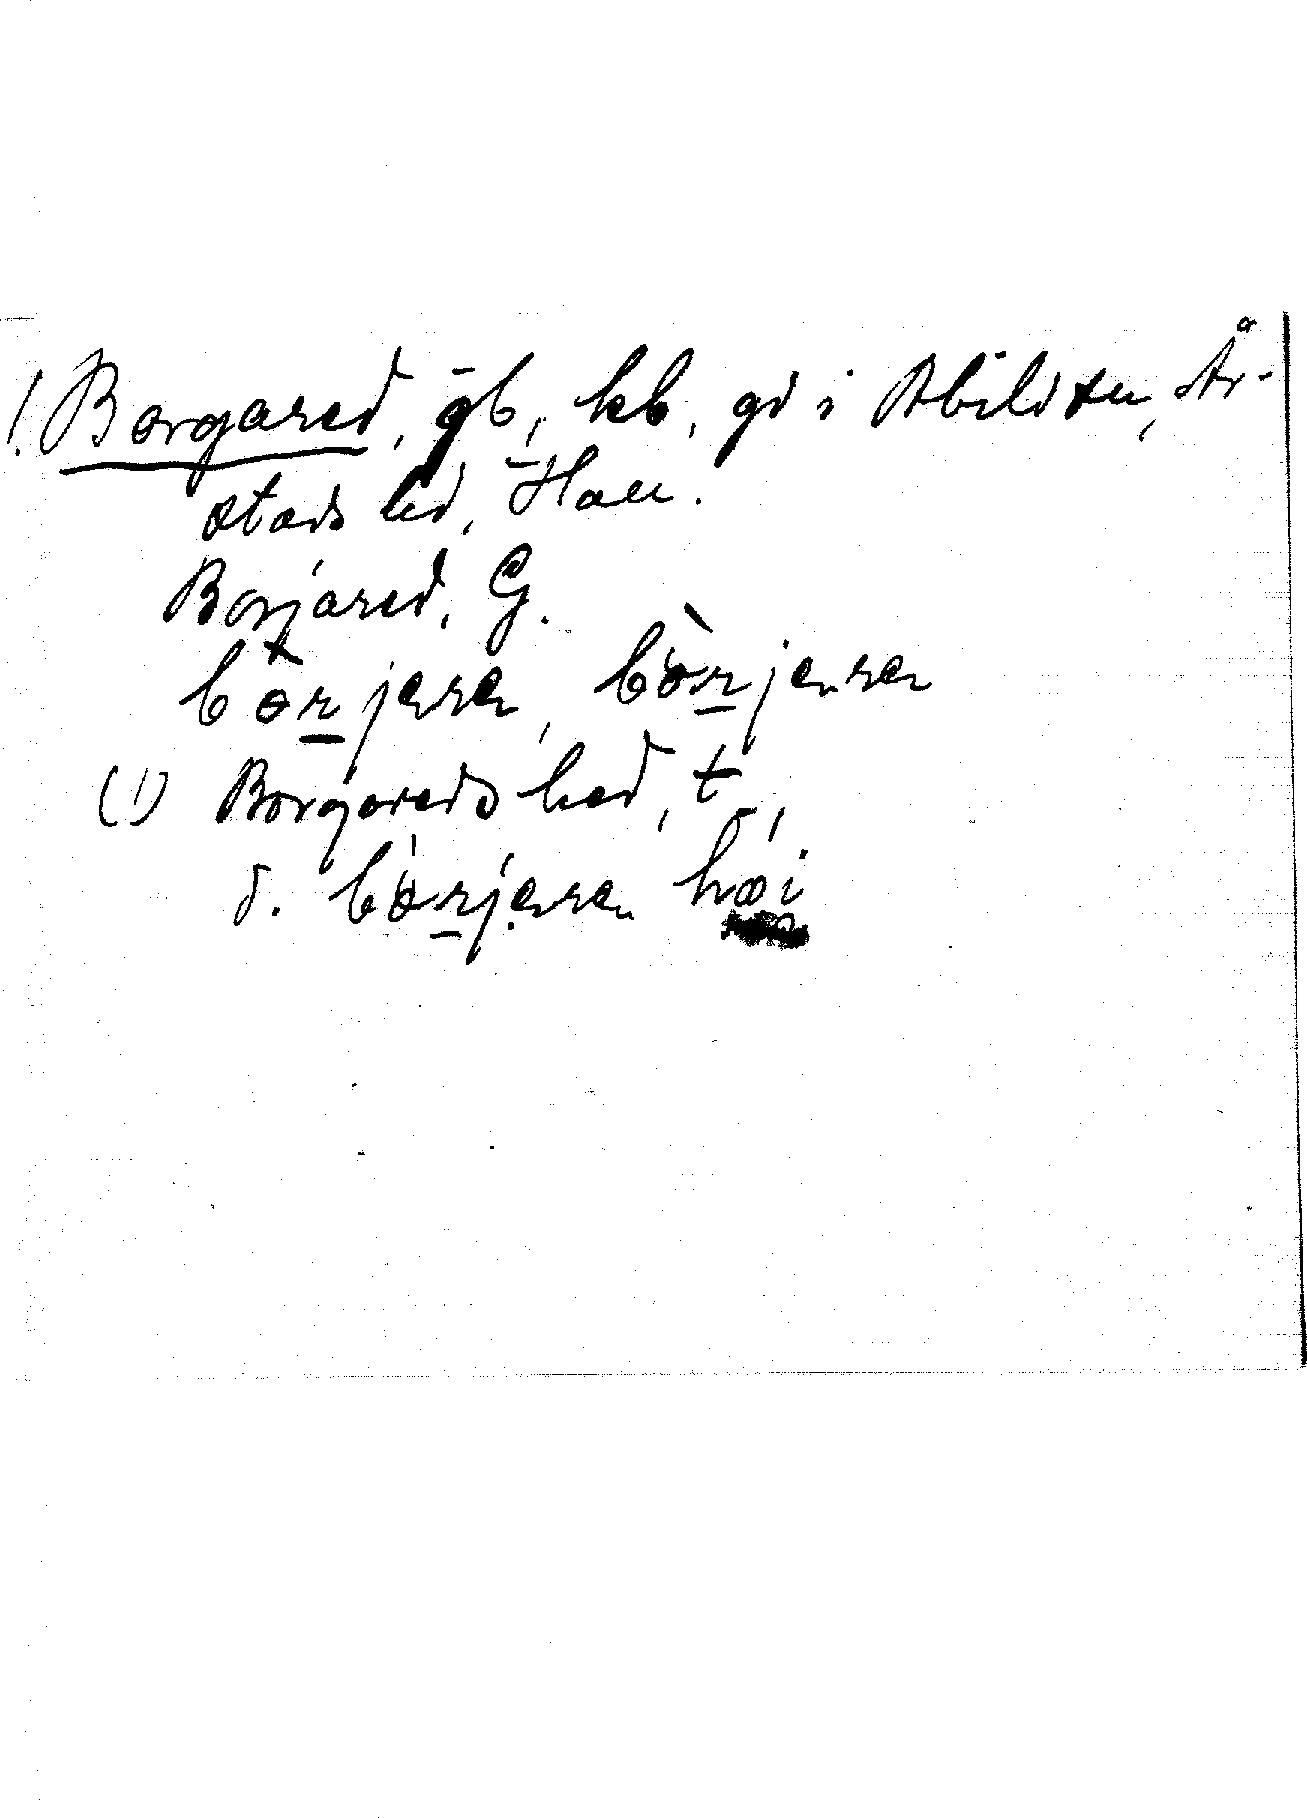 1. Borgared, gb, kb, gd i Abild sn, År-
stads hd, Hall.
Borjared, G.
bòrjere, bòrjere
(1) Borgareds hed, t.,
d. bórjere hai